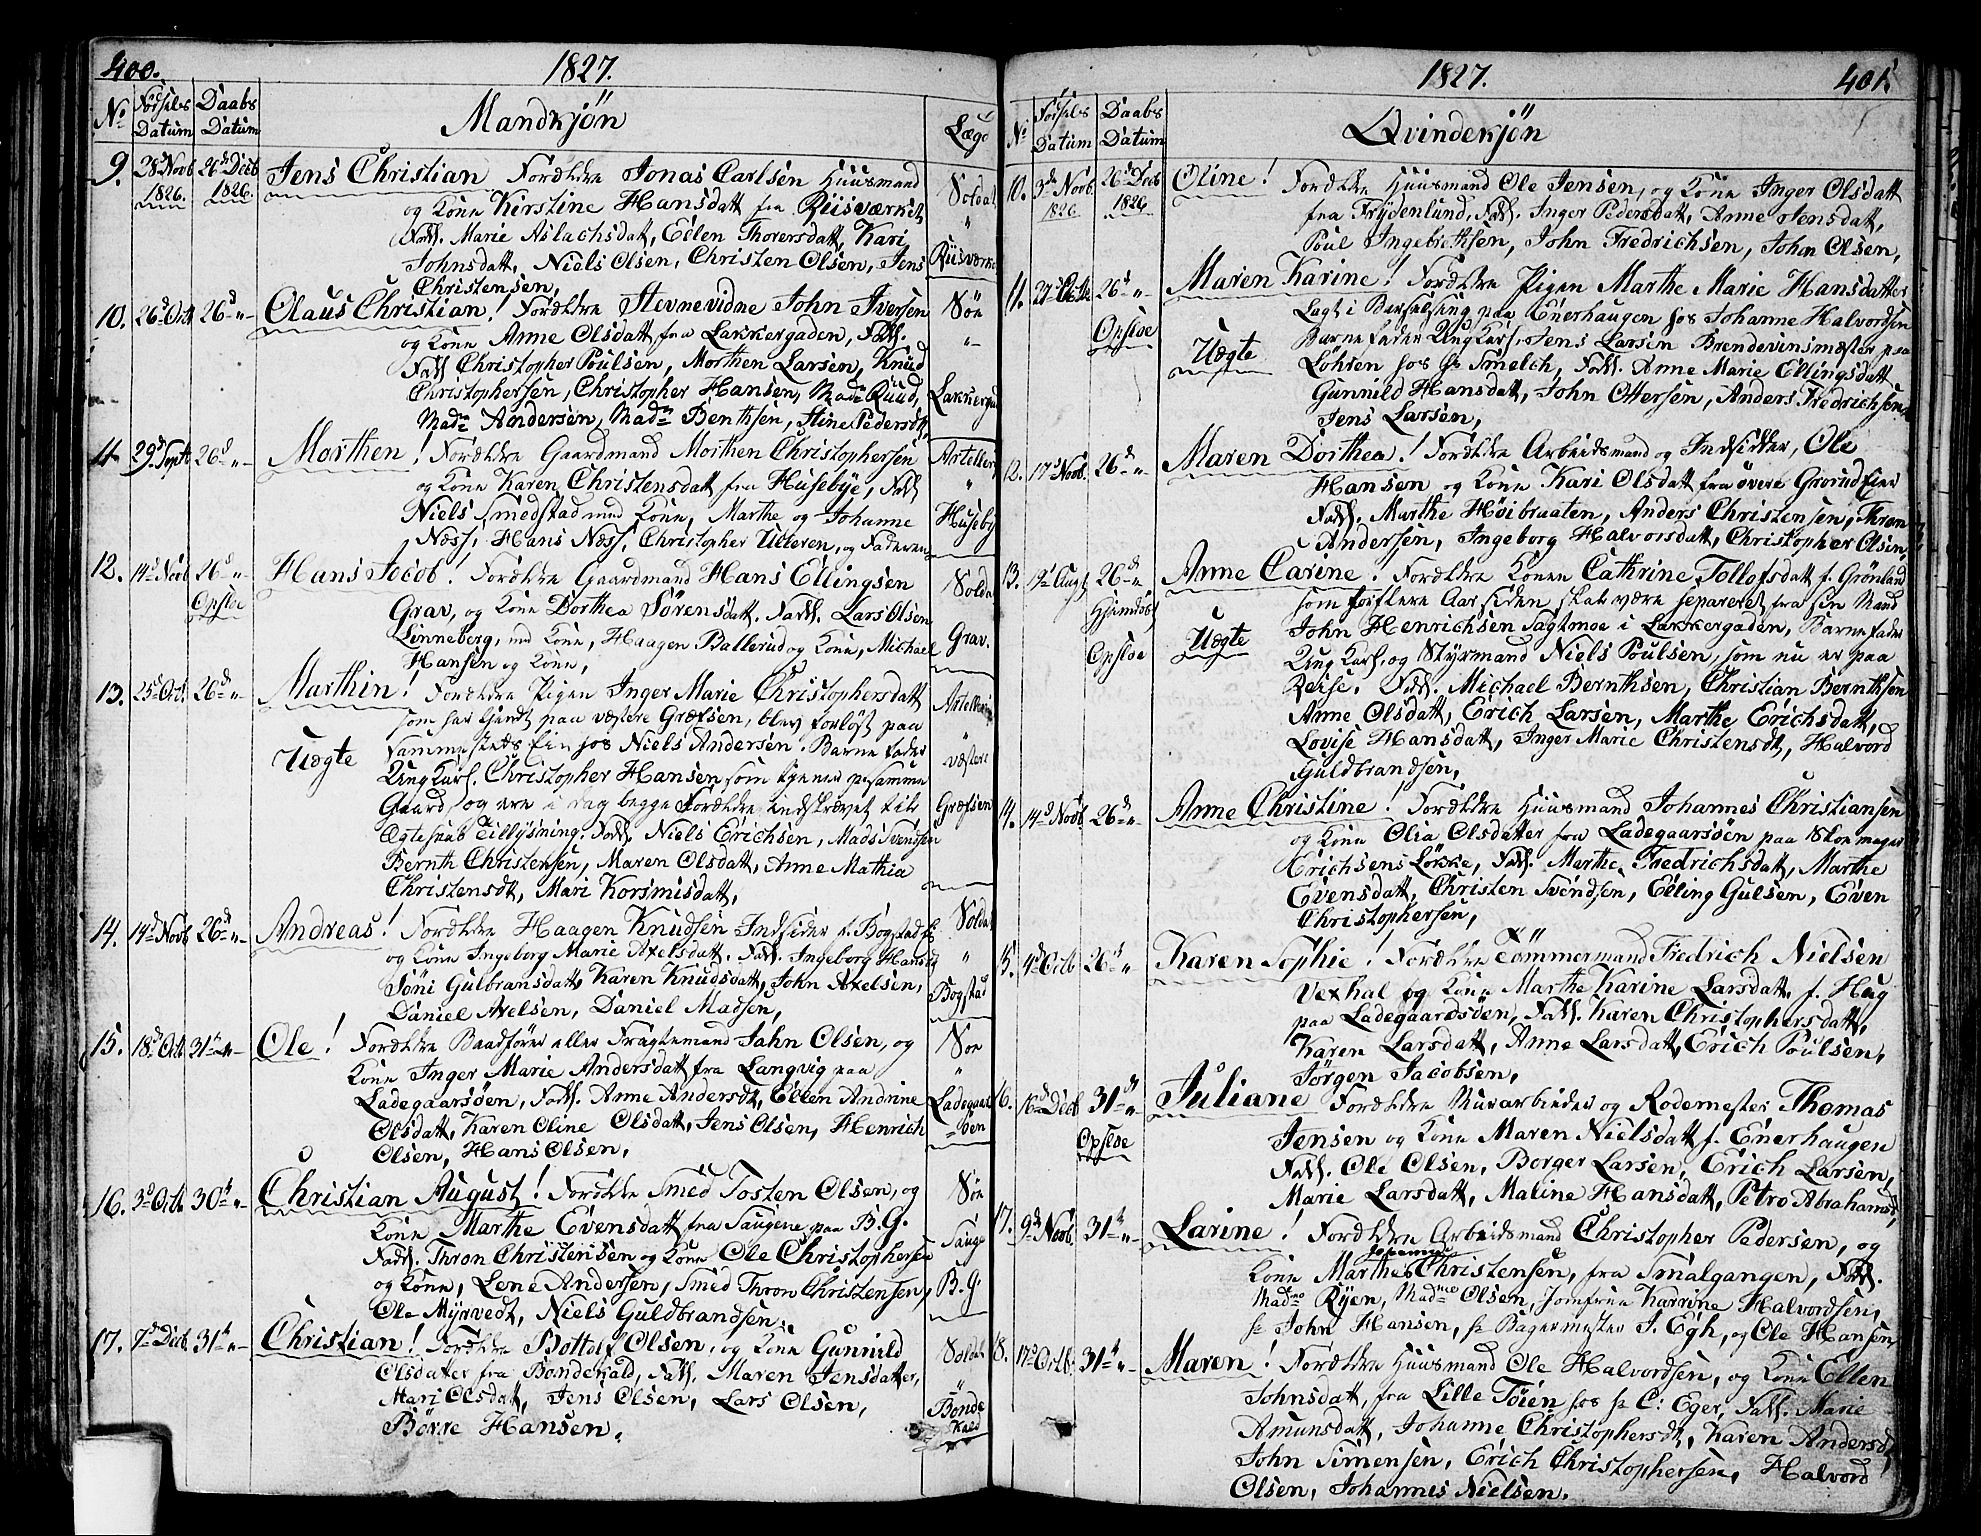 400.
1827.
No
Fødsels Datum
Daabs Datum
Mandkjön
Læge
9. 28d Novb 1826. 26d Decb 1826. Jens Christian Forældre Jonas Carlsen Huusmand Soldat
og Kone Kirstine Hansdatt fra Riisværket, "
Fadd. Marie Aslachsdatt, Ellen Thorersdatt, Kari Riisværket
Johnsdatt, Niels Olsen, Christen Olsen, Jens
Christensen,
10. 26d Octb 26d " Olaus Christian! Forældre Stevnevidne John Iversen Söe
og Kone Anne Olsdatt fra Lakkergaden, Fadd.
Fadd Christopher Poulsen, Morthen Larsen, Knud
Christophersen, Christopher Hansen, Made Ruud, Lakkergad
Made Andersen, Made Benthsen, Stine Pedersdt,
11. 29d Septb 26d " Morthen! Forældre Gaardmand Morthen Christophersen Artelleri
og Kone Karen Christensdatt fra Husebye, Fadd "
Niels Smedstad med Kone, Marthe og Johanne Huseby
Næss, Hans Næss, Christopher Ulleren, og Faderen
12. 14d Novb 26d " Opsloe Hans Jocob! Forældre Gaardmand Hans Ellingsen Soldat
Grav, og Kone Dorthea Sörensdatt. Fadd. Lars Olsen
Linneberg, md Kone, Haagen Ballerud og Kone, Michael Grav.
Hansen og Kone,
13. 25d Octb 26d " Marthin! Forældre Pigen Inger Marie Christophersdatt Artelleri
som har tjendt paa væstere Græfsen, blev forløst paa "
Uægte sammesteds Eie hos Niels Andersen. Barnefader væstere
Ung Karl. Christopher Hansen som tjener paa samme
Gaard, og ere i dag begge Forældre indskrevet til Græfsen
Ægteskab Tillysning. Fadd. Niels Erichsen, Mads Svendsen
Bernth Christensen, Maren Olsdatt, Anne Mathia
Christensdt, Mari Korsmisdatt,
14. 14d Novb 26d " Andreas! Forældre Haagen Knudsen Indsider f. Bogstad Soldat
og Kone Ingeborg Marie Axelsdatt. Fadd. Ingeborg Hansdt "
Söni Gulbransdatt, Karen Knudsdatt, John Axelsen, Bogstad
Daniel Axelsen, Daniel Madsen,
15. 18d Octb 31te " Ole! Forældre Baadförer eller Fragtemand Jahn Olsen, og Söe
Kone Inger Marie Andersdatt fra Langvig paa "
Ladegaarsöen, Fadd. Anne Andersdt, Ellen Andrine Ladegaars
Olsdatt, Karen Oline Olsdatt, Jens Olsen, Henrich öen
Olsen, Hans Olsen,
16. 3d Octb 30te " Christian August! Forældre Smed Tosten Olsen, og Söe
Kone Marthe Evensdatt fra Saugene paa B.G. Sauge
Fadd. Thron Christensen og Kone Ole Christophersen
og Kone, Lene Andersen, Smed Thron Christensen, B.G
Ole Myrvedt, Niels Guldbrandsen,
17. 7d Decb 31te " Christian! Forældre Bottolf Olsen, og Kone Gunnild Soldat
Olsdatter fra Bondekald, Fadd. Maren Jensdatter, "
Mari Olsdatt, Jens Olsen, Lars Olsen, Bonde
Börre Hansen. Kald
1827.
401.
No
Fødsels Datum
Daabs Datum
Qvindekjön
10. 3d Novb 1826 26d Decb 1826 Oline! Forældre Huusmand Ole Jensen, og Kone Inger Olsdatt
fra Frydenlund, Fadd. Inger Pedersdatt, Anne Jensdatt,
Poul Ingebrethsen, John Fredrichsen, John Olsen,
11. 26d " Opsloe Maren Karine! Forældre Pigen Marthe Marie Hansdatter
Lagt i Barselseng paa Enerhaugen hos Johanne Halvordsen
Uægte Barnefader Ung Karl. Jens Larsen Brendevinsmester paa
Lohren hos Hr Smelch, Fadd. Anne Marie Ellingsdatt
Gunnild Hansdatt, John Ottersen, Anders Fredrichsen
Jens Larsen,
12. 17d Novb. 26d " Maren Dorthea! Forældre Arbeidsmand og Indsidder, Ole
Hansen og Kone Kari Olsdatt fra övere Grorud Eier
Fadd. Marthe Höibraaten, Anders Christensen, Thron
Andersen, Ingeborg Halvorsdatt, Christopher Olsen,
13. 19d Augt 26d " Hjemdöbt Opsloe Anne Carine! Forældre Konen Cathrine Tollofsdatt f. Grönland
som for flere Aar siden skal være separeret fra sin Mand
Uægte John Henrichsen Sagtmoe i Lakkergaden, Barnefader
Ung Karl, og Styrmand Niels Poulsen, som nu er paa
Reise. Fadd. Michael Bernthsen, Christian Bernthsen
Anne Olsdatt, Erich Larsen, Marthe Erichsdatt,
Lovise Hansdatt, Inger Marie Christensdt, Halvord
Guldbrandsen,
14. 14d Novb 26d " Anne Christine! Forældre Huusmand Johannes Christiansen
og Kone Olia Olsdatter fra Ladegaarsöen paa Skomager
Erichsens Løkke, Fadd. Marthe Fredrichsdatt, Marthe
Evensdatt, Christen Svendsen, Elling Gulsen, Even
Christophersen,
15. 4d Octb 26d " Karen Sophie! Forældre Tömmermand Fredrich Nielsen
Vexhal og Kone Marthe Karine Larsdatt, f. Hug
paa Ladegaardsöen, Fadd. Karen Christophersdatt,
Karen Larsdatt, Anne Larsdatt, Erich Poulsen,
Jörgen Jacobsen,
16. 16d Decb 31te " Opsloe Juliane Forældre Murarbeider og Rodemester Thomas
Jensen og Kone Maren Nielsdatt f. Enerhaugen
Fadd. Ole Olsen, Borger Larsen, Erich Larsen,
Marie Larsdatt, Maline Hansdatt, Petro Abrahamsd,
17. 9d Novb. 31te " Larine! Forældre Arbeidsmand Christopher Pedersen, og
Kone Marthe Johanne Christensen, fra Smalgangen, Fadd.
Madme Ryen, Madme Olsen, Jomfrue Karrine Halvordsen,
Hr John Hansen, Hr Bagermester J. Egh, og Ole Hansen
18. 17d Octb. 31te " Maren! Forældre Huusmand Ole Halvordsen, og Kone Ellen
Johnsdatt, fra Lille Töien hos Hr C: Eger, Fadd. Marie
Amunsdatt, Johanne Christophersdt, Karen Andersdt,
John Simensen, Erich Christophersen, Halvord
Olsen, Johannes Nielsen.